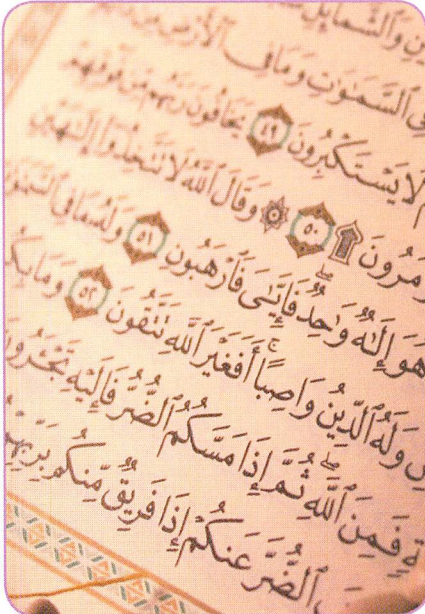 وَالشَّمَآئِلِ
السَّمَـٰوَٰتِ وَمَا فِى الْأَرْضِ مِن
لَا يَسْتَكْبِرُونَ ٤٩ يَخَافُونَ رَبَّهُم مِّن فَوْقِهِمْ
ؤْمَرُونَ ۩ ٥٠ ۞ وَقَالَ اللَّهُ لَا تَتَّخِذُوا إِلَـٰهَيْنِ
هُوَ إِلَـٰهٌ وَٰحِدٌ ۖ فَإِيَّـٰىَ فَارْهَبُونِ ٥١ وَلَهُ مَا فِى السَّمَـٰوَٰ
وَلَهُ الدِّينُ وَاصِبًا ۚ أَفَغَيْرَ اللَّهِ تَتَّقُونَ ٥٢ وَمَا بِكُم
فَمِنَ اللَّهِ ۖ ثُمَّ إِذَا مَسَّكُمُ الضُّرُّ فَإِلَيْهِ تَجْـَٔرُونَ
الضُّرَّ عَنكُمْ إِذَا فَرِيقٌ مِّنكُم بِرَبِّهِمْ